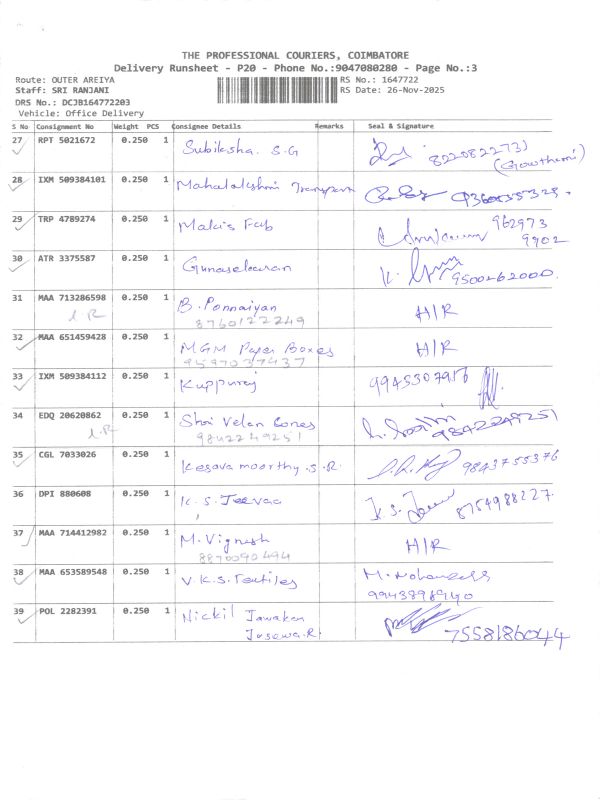 THE PROFESSIONAL COURIERS, COIMBATORE
Delivery Runsheet - P20 - Phone No.:9047080280 - Page No.:3
Route: OUTER AREIYA RS No.: 1647722
Staff: SRI RANJANI RS Date: 26-Nov-2025
DRS No.: DCJB164772203
Vehicle: Office Delivery
S No Consignment No Weight PCS Consignee Details Remarks Seal & Signature
27 RPT 5021672 0.250 1 Subiksha. S.G 8220822731
(Gowthami)
28 IXM 509384101 0.250 1 Mahalakshmi Transport
29 TRP 4789274 0.250 1 Makis Fab 962973
9902
30 ATR 3375587 0.250 1 Gunasekaran K. 9500262000.
31 MAA 713286598 0.250 1 B. Ponnaiyan H/R
8760122249
32 MAA 651459428 0.250 1 MGM Paper Boxes H/R
9597037437
33 IXM 509384112 0.250 1 Kuppuraj 9945307956
34 EDQ 20620862 0.250 1 Shri Velan Cones 9842249251
9842249251
35 CGL 7033026 0.250 1 Kesava moorthy.S.R. 9843755376
36 DPI 880608 0.250 1 K.S. Jeevaa K.S. 8754988227.
37 MAA 714412982 0.250 1 M. Vignesh H/R
8870090494
38 MAA 653589548 0.250 1 V.K.S. Textiles M.
9943898940
39 POL 2282391 0.250 1 Nickil Jawahar 7558186044